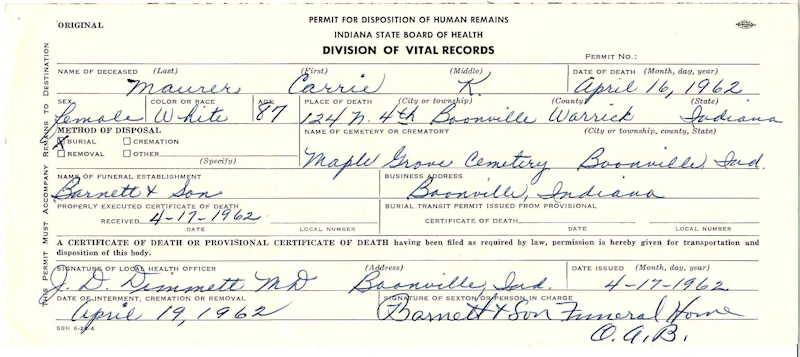 ORIGINAL
PERMIT FOR DISPOSITION OF HUMAN REMAINS
INDIANA STATE BOARD OF HEALTH
DIVISION OF VITAL RECORDS
PERMIT NO.:
THIS PERMIT MUST ACCOMPANY REMAINS TO DESTINATION
NAME OF DECEASED (Last) (First) (Middle) DATE OF DEATH (Month, day, year)
Maurer Carrie K. April 16, 1962
SEX COLOR OR RACE AGE PLACE OF DEATH (City or township) (County) (State)
Female White 87 124 N. 4th Boonville Warrick Indiana
METHOD OF DISPOSAL NAME OF CEMETERY OR CREMATORY (City or township, county, State)
X BURIAL CREMATION
REMOVAL OTHER
(Specify)
Maple Grove Cemetery Boonville, Ind.
NAME OF FUNERAL ESTABLISHMENT BUSINESS ADDRESS
Barnett & Son Boonville, Indiana
PROPERLY EXECUTED CERTIFICATE OF DEATH BURIAL TRANSIT PERMIT ISSUED FROM PROVISIONAL
RECEIVED 4-17-1962 CERTIFICATE OF DEATH
DATE LOCAL NUMBER DATE LOCAL NUMBER
A CERTIFICATE OF DEATH OR PROVISIONAL CERTIFICATE OF DEATH having been filed as required by law, permission is hereby given for transportation and
disposition of this body.
SIGNATURE OF LOCAL HEALTH OFFICER (Address) DATE ISSUED (Month, day, year)
J. D. Dimmett MD Boonville, Ind. 4-17-1962
DATE OF INTERMENT, CREMATION OR REMOVAL SIGNATURE OF SEXTON OR PERSON IN CHARGE
April 19, 1962 Barnett & Son Funeral Home
O.A.B.